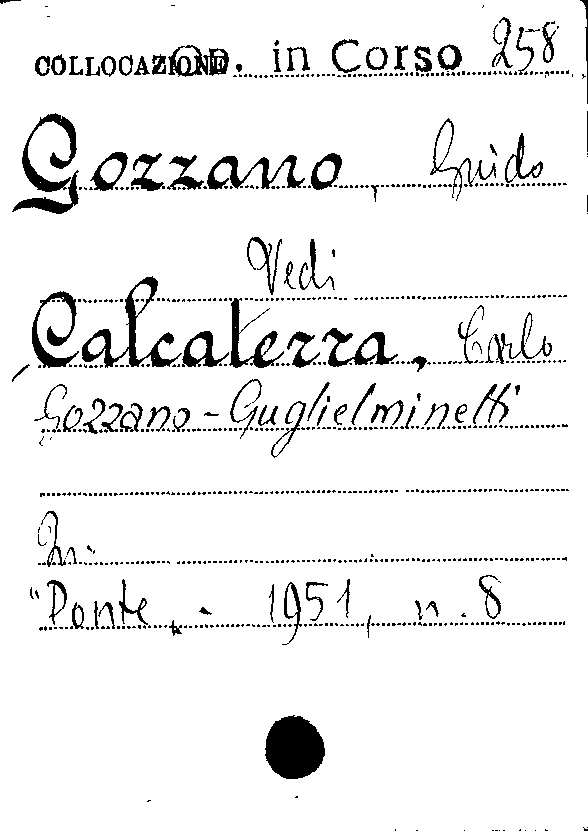 COLLOCAZIONE OP. in Corso 258
Gozzano, Guido
Vedi
Calcaterra, Carlo
Gozzano - Guglielminetti
In:
"Ponte„ - 1951, n. 8